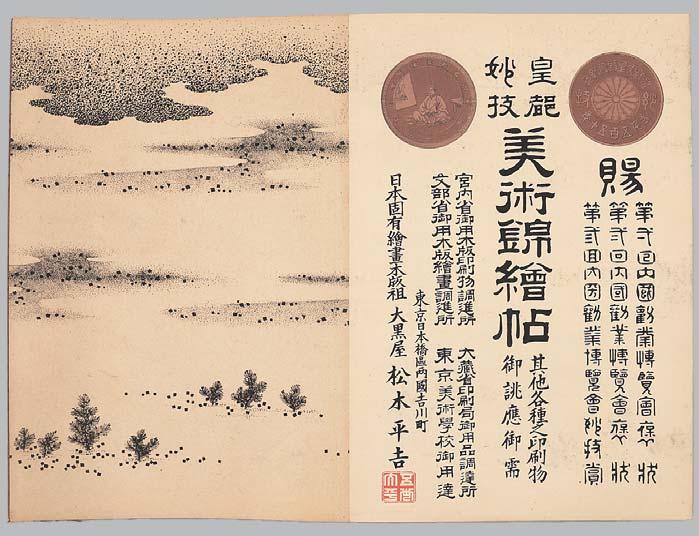 賜
第弐回内国勧業博覧会褒状
第弐回内国勧業博覧会褒状
第弐回内国勧業博覧会妙技賞
皇都
妙技
美術錦繪帖
其他各種之印刷物
御誂應御需
宮内省御用木版印刷物調進所
文部省御用木版繪畫調進所
大蔵省印刷局御用品調達所
東京美術學校御用達
東京日本橋區両國吉川町
日本固有繪畫木版祖 大黒屋 松木平吉